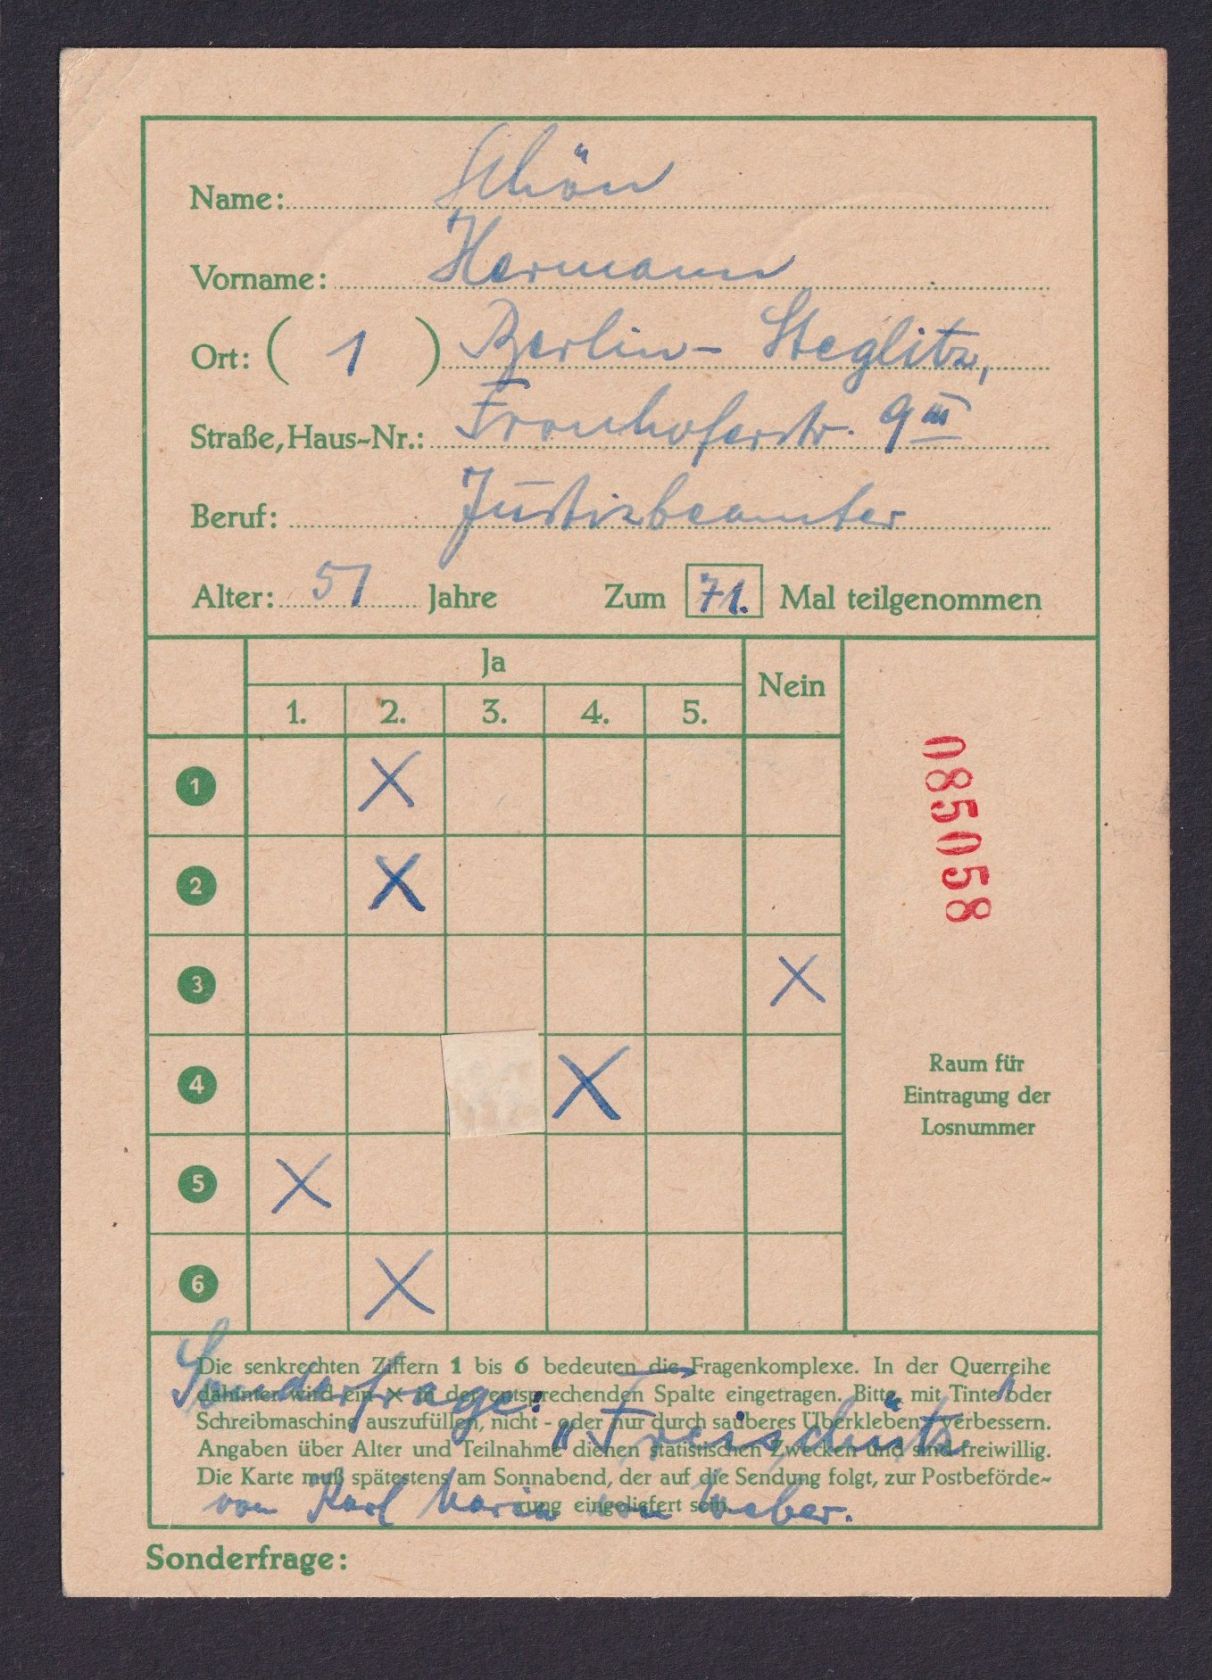 Name: Schön
Vorname: Hermann
Ort: ( 1 ) Berlin-Steglitz,
Straße, Haus-Nr.: Fronhoferstr. 9 III
Beruf: Justizbeamter
Alter: 51 Jahre Zum 71. Mal teilgenommen
Ja Nein
1. 2. 3. 4. 5.
1 X
2 X
3 X
4 X
5 X
6 X
085058
Raum für
Eintragung der
Losnummer
Die senkrechten Ziffern 1 bis 6 bedeuten die Fragenkomplexe. In der Querreihe
dahinter wird ein x in der entsprechenden Spalte eingetragen. Bitte mit Tinte oder
Schreibmaschine auszufüllen, nicht - oder nur durch sauberes Überkleben - verbessern.
Angaben über Alter und Teilnahme dienen statistischen Zwecken und sind freiwillig.
Die Karte muß spätestens am Sonnabend, der auf die Sendung folgt, zur Postbeförde-
rung eingeliefert sein.
Sonderfrage: "Freischütz"
von Karl Maria von Weber.
Sonderfrage: